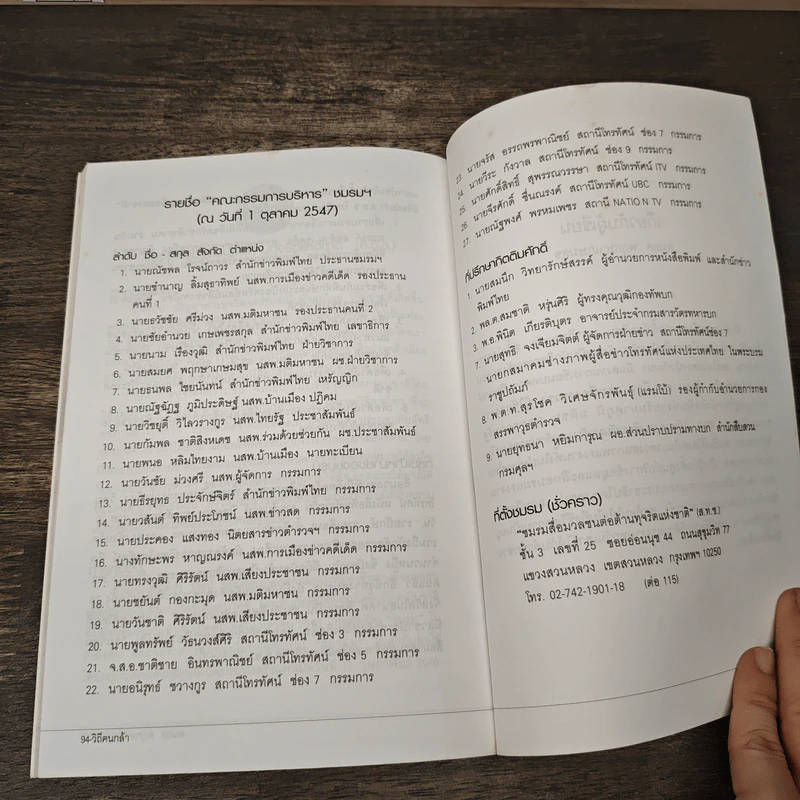 รายชื่อ "คณะกรรมการบริหาร" ชมรมฯ
(ณ วันที่ 1 ตุลาคม 2547)
ลำดับ ชื่อ - สกุล สังกัด ตำแหน่ง
1. นายณัชพล โรจน์ถาวร สำนักข่าวพิมพ์ไทย ประธานชมรมฯ
2. นายชำนาญ ลิ้มสุธาทิพย์ นสพ.การเมืองข่าวคดีเด็ด รองประธาน
คนที่ 1
3. นายธวัชชัย ศรีม่วง นสพ.มติมหาชน รองประธานคนที่ 2
4. นายชัยอำนวย เกษเพชรสกุล สำนักข่าวพิมพ์ไทย เลขาธิการ
5. นายนาม เรืองวุฒิ สำนักข่าวพิมพ์ไทย ฝ่ายวิชาการ
6. นายสมยศ พฤกษาเกษมสุข นสพ.มติมหาชน ผช.ฝ่ายวิชาการ
7. นายธนพล ไชยนันทน์ สำนักข่าวพิมพ์ไทย เหรัญญิก
8. นายณัฐฉัฏฐ ภูมิประดิษฐ์ นสพ.บ้านเมือง ปฏิคม
9. นายวิชยุตติ์ วิไลวรางกูร นสพ.ไทยรัฐ ประชาสัมพันธ์
10. นายกัมพล ชาติสิงหเดช นสพ.ร่วมด้วยช่วยกัน ผช.ประชาสัมพันธ์
11. นายพนอ หลิมไทยงาม นสพ.บ้านเมือง นายทะเบียน
12. นายวันชัย ม่วงศรี นสพ.ผู้จัดการ กรรมการ
13. นายธีรยุทธ ประจักษ์จิตร์ สำนักข่าวพิมพ์ไทย กรรมการ
14. นายวสันต์ ทิพย์ประโภชน์ นสพ.ข่าวสด กรรมการ
15. นายประคอง แสงทอง นิตยสารข่าวตำรวจฯ กรรมการ
16. นางทักษะพร หาญณรงค์ นสพ.การเมืองข่าวคดีเด็ด กรรมการ
17. นายทรงวุฒิ ศิริรัตน์ นสพ.เสียงประชาชน กรรมการ
18. นายชยันต์ กองกะมุด นสพ.มติมหาชน กรรมการ
19. นายวันชาติ ศิริรัตน์ นสพ.เสียงประชาชน กรรมการ
20. นายพูลทรัพย์ วัธนวงส์ศิริ สถานีโทรทัศน์ ช่อง 3 กรรมการ
21. จ.ส.อ.ชาติชาย อินทรพาณิชย์ สถานีโทรทัศน์ ช่อง 5 กรรมการ
22. นายอนิรุทธ์ ชวางกูร สถานีโทรทัศน์ ช่อง 7 กรรมการ
94-วิถีคนกล้า
23. นายจรัส อรรถพรพาณิชย์ สถานีโทรทัศน์ ช่อง 7 กรรมการ
24. นายวีระ กังวาล สถานีโทรทัศน์ ช่อง 9 กรรมการ
25. นายศักดิ์สิทธิ์ สุพรรณวรรษา สถานีโทรทัศน์ ITV กรรมการ
26. นายจีรศักดิ์ ชื่นณรงค์ สถานีโทรทัศน์ UBC กรรมการ
27. นายณัฐพงศ์ พรหมเพชร สถานี NATION TV กรรมการ
ที่ปรึกษากิตติมศักดิ์
1. นายสมนึก วิทยารักษ์สรรค์ ผู้อำนวยการหนังสือพิมพ์ และสำนักข่าว
พิมพ์ไทย
2. พล.ต.สมชาติ หรุ่นศิริ ผู้ทรงคุณวุฒิกองทัพบก
3. พ.อ.พินิต เกียรติบุตร อาจารย์ประจำกรมสารวัตรทหารบก
7. นายสุทธิ จงเจียมจิตต์ ผู้จัดการฝ่ายข่าว สถานีโทรทัศน์ช่อง7
นายกสมาคมช่างภาพผู้สื่อข่าวโทรทัศน์แห่งประเทศไทย ในพระบรม
ราชูปถัมภ์
8. พ.ต.ท.สุรโชค วิเศษจักรพันธุ์ (แรมโบ้) รองผู้กำกับอำนวยการกอง
สรรพาวุธตำรวจ
9. นายยุทธนา หยิมการุณ ผอ.ส่วนปราบปรามทางบก สำนักสืบสวน
กรมศุลฯ
ที่ตั้งชมรม (ชั่วคราว)
"ชมรมสื่อมวลชนต่อต้านทุจริตแห่งชาติ" (ส.ท.ช.)
ชั้น 3 เลขที่ 25 ซอยอ่อนนุช 44 ถนนสุขุมวิท 77
แขวงสวนหลวง เขตสวนหลวง กรุงเทพฯ 10250
โทร. 02-742-1901-18 (ต่อ 115)